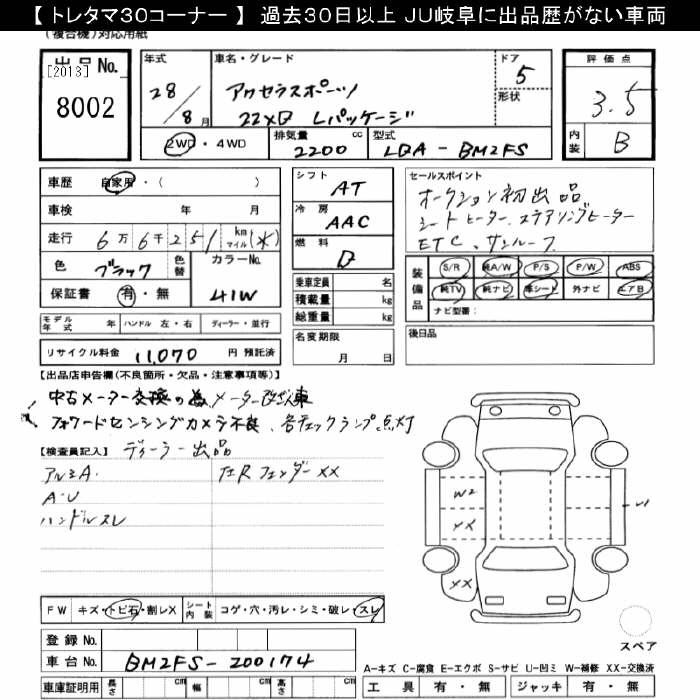 【 トレタマ30コーナー 】 過去30日以上 JU岐阜に出品歴がない車両
(複合機)対応用紙
出品 No.
[2013]
8002
年式
28/8月
車名・グレード
アクセラスポーツ
22XD Lパッケージ
ドア
5
形状
評価点
3.5
内装
B
2WD・4WD
排気量
2200 cc
型式
LDA-BM2FS
車歴 自家用・( )
車検 年 月
走行 6万6千251 km マイル (*)
色 ブラック 色替
カラーNo.
41W
保証書 有・無
シフト
AT
冷房
AAC
燃料
D
乗車定員 名
積載量 kg
総重量 kg
名変期限
月 日
セールスポイント
オークション初出品
シートヒーター、ステアリングヒーター
ETC、サンルーフ
装備品
S/R 純A/W P/S P/W ABS
純TV 純ナビ 革シート 外ナビ エアB
ナビ型番:
後日品
モデル年式 年 ハンドル 左・右 ディーラー・並行
リサイクル料金 11,070 円 預託済
【出品店申告欄(不良箇所・欠品・注意事項等)】
中古メーター交換の為メーター改ざん車
フォワードセンシングカメラ不良、各チェックランプ点灯
【検査員記入】 ディーラー出品
アルミA. 左Rフェンダー XX
A・U
ハンドルスレ
W2
XX
XX
FW キズ・トビ石・割レX シート内装 コゲ・穴・汚レ・シミ・破レ・スレ
スペア
登録 No.
車台 No. BM2FS-200174
車庫証明用 長さ cm 幅 cm 高さ cm
A-キズ C-腐食 E-エクボ S-サビ U-凹ミ W-補修 XX-交換済
工具 有・無 ジャッキ 有・無